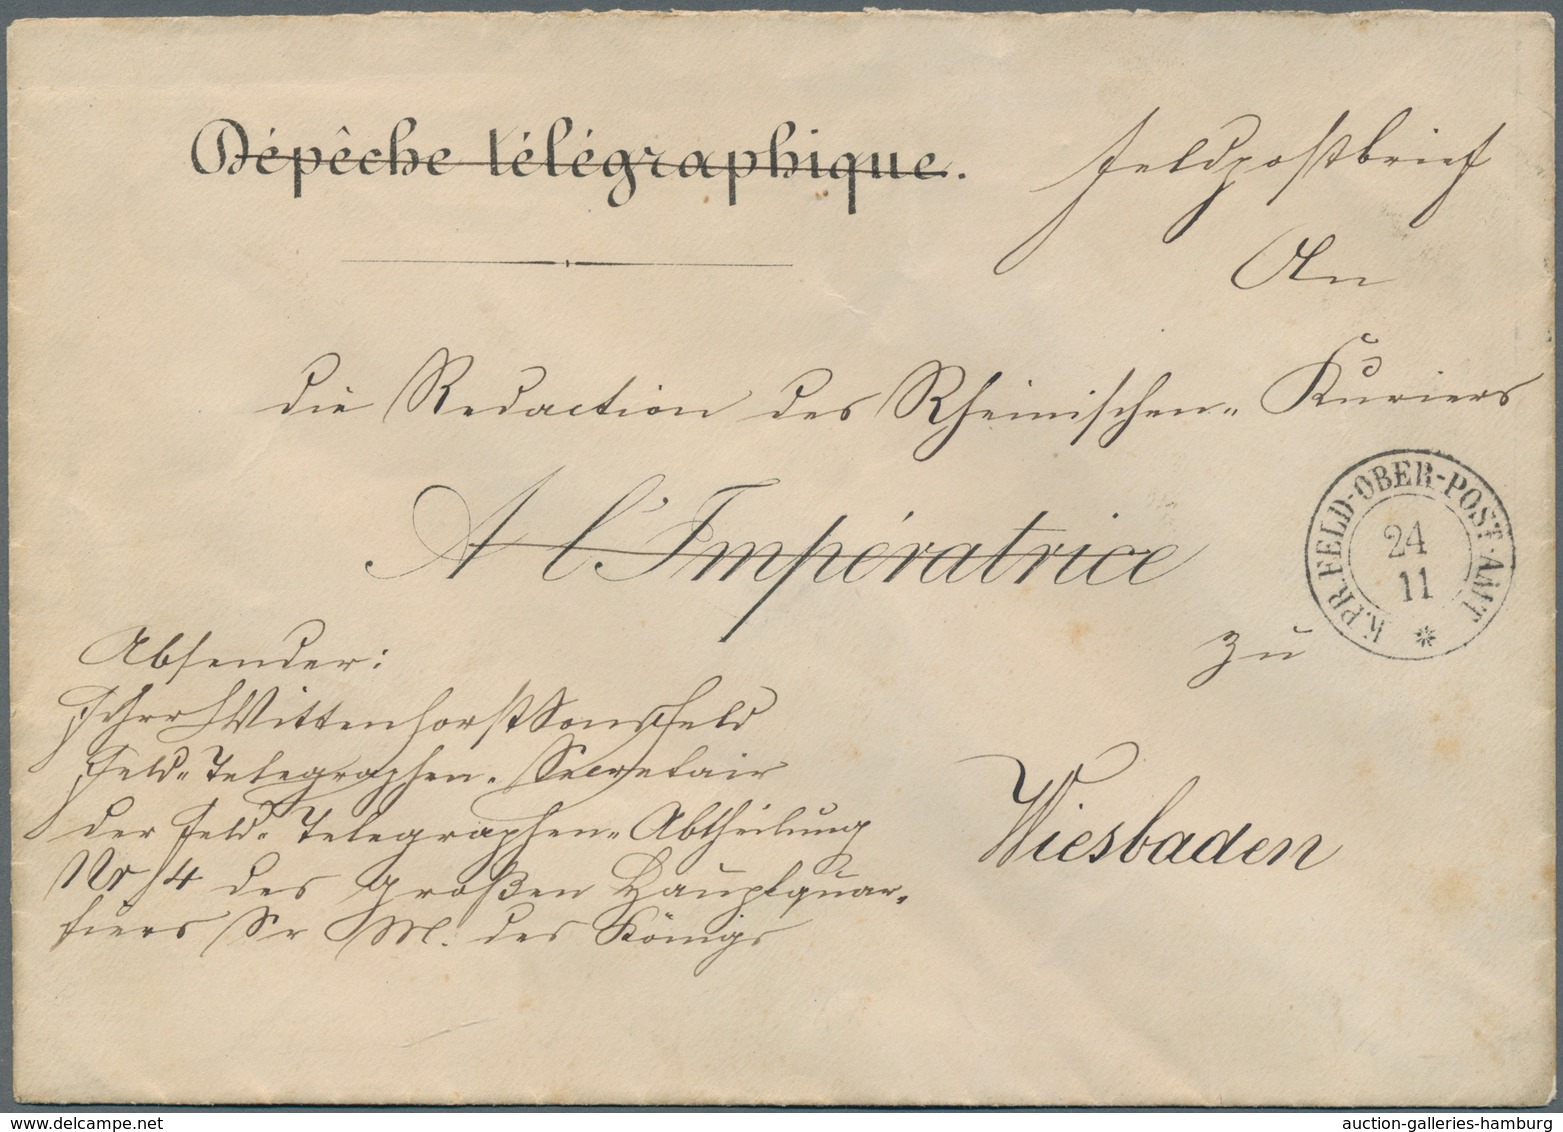 Dépêche télégraphique.
Feldpostbrief
An
die Redaction des Rheinischen Kuriers
A l'Impératrice
K.PR.FELD-OBER-POST-AMT
24
11
zu
Wiesbaden
Absender:
Frhrr Wittenhorst Sonsfeld
Feld-Telegraphen-Secretair
der Feld-Telegraphen-Abtheilung
Nr 4 des Großen Hauptquar-
tiers Sr M. des Königs
www.delcampe.net
auction-galleries-hamburg